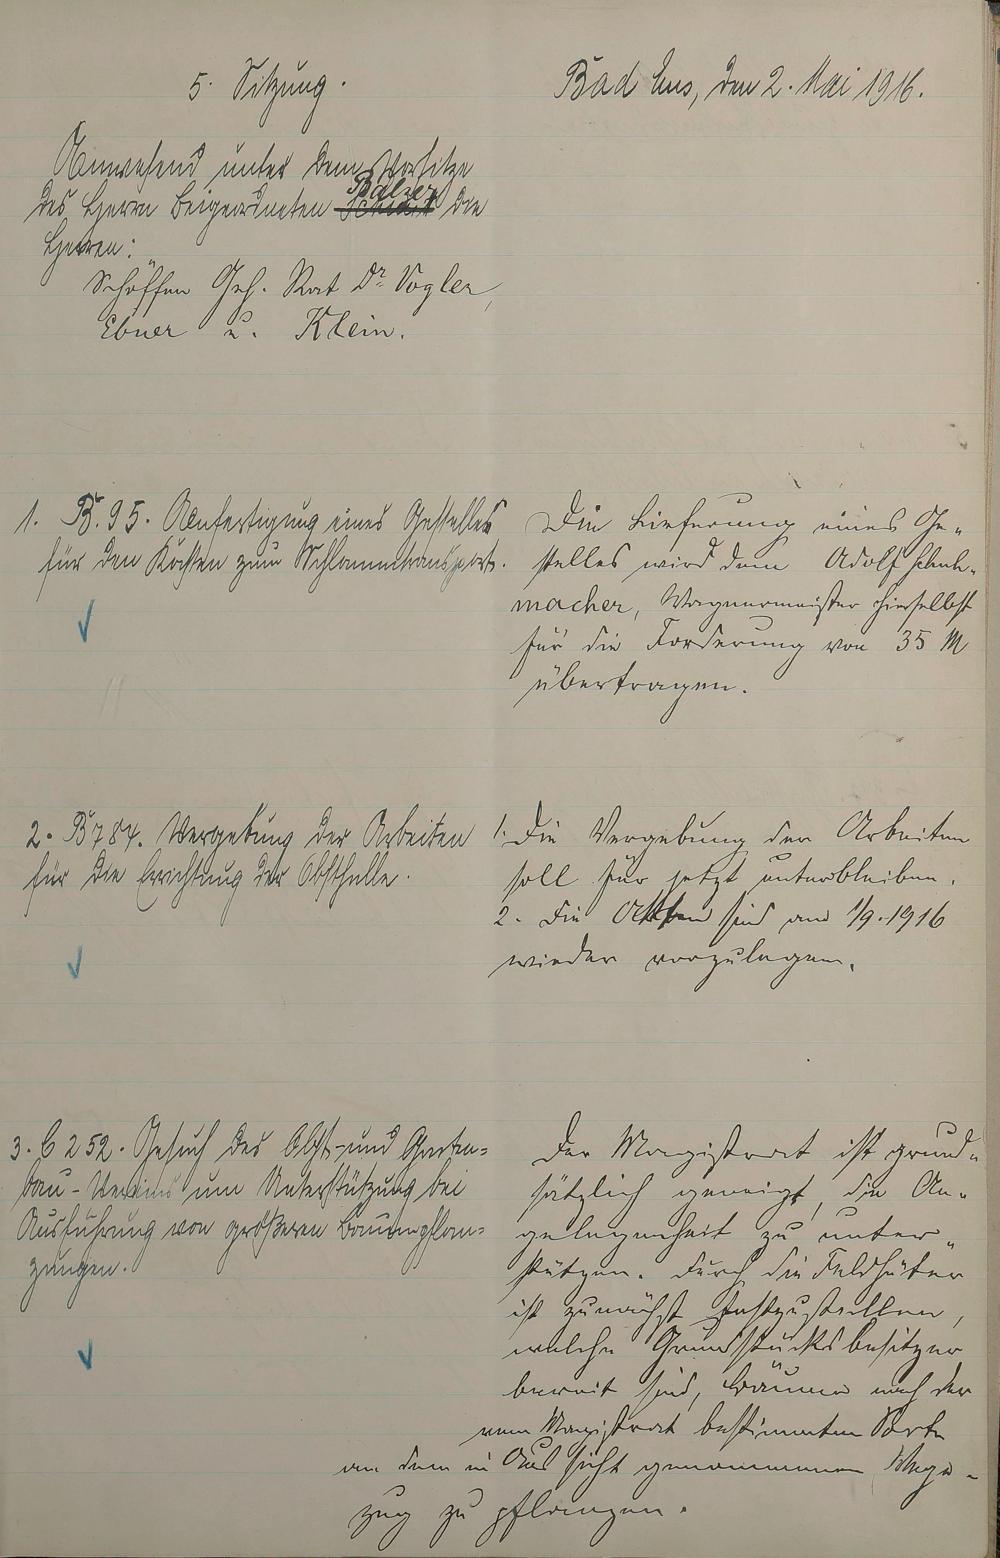 5. Sitzung.
Bad Ems, den 2. Mai 1916.
Anwesend unter dem Vorsitze
des Herrn Beigeordneten Balzer die
Herren:
Schöffen Geh. Rat Dr. Vogler,
Ebner u. Klein.
1. B. 95. Anfertigung eines Gestelles
für den Kasten zum Schlammtransport.
Die Lieferung eines Ge-
stelles wird dem Adolf Schuh-
macher, Wagnermeister hierselbst
für die Forderung von 35 M
übertragen.
2. B 784. Vergebung der Arbeiten
für die Errichtung der Obsthalle.
1. Die Vergebung der Arbeiten
soll für jetzt unterbleiben.
2. Die Akten sind am 1/9.1916
wieder vorzulegen.
3. C 252. Gesuch des Obst- und Garten-
bau-Vereins um Unterstützung bei
Ausführung von größeren Baumpflan-
zungen.
Der Magistrat ist grund-
sätzlich geneigt, die An-
gelegenheit zu unter-
stützen. Durch die Feldhüter
ist zunächst festzustellen,
welche Grundstücksbesitzer
bereit sind, Bäume nach der
vom Magistrat bestimmten Sorte
an dem in Aussicht genommenen Wege-
zug zu pflanzen.